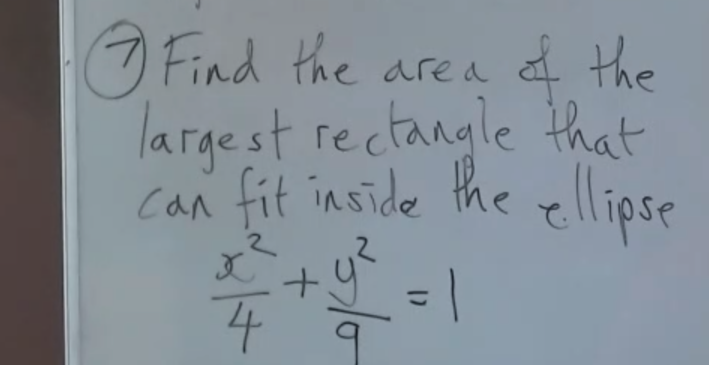 ⑦ Find the area of the
largest rectangle that
can fit inside the ellipse
x²/4 + y²/9 = 1